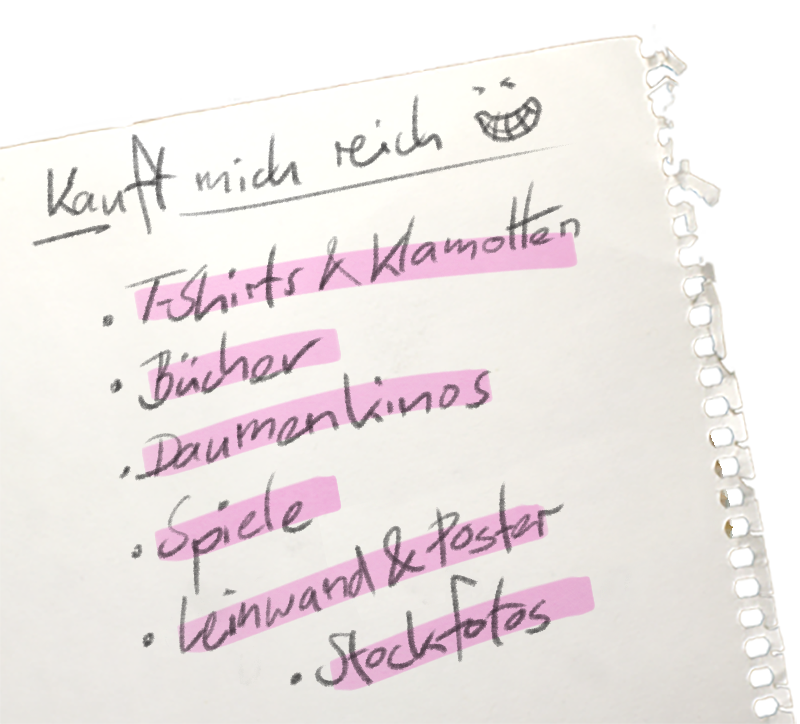 Kauft mich reich
• T-Shirts & Klamotten
• Bücher
• Daumenkinos
• Spiele
• Leinwand & Poster
• Stockfotos